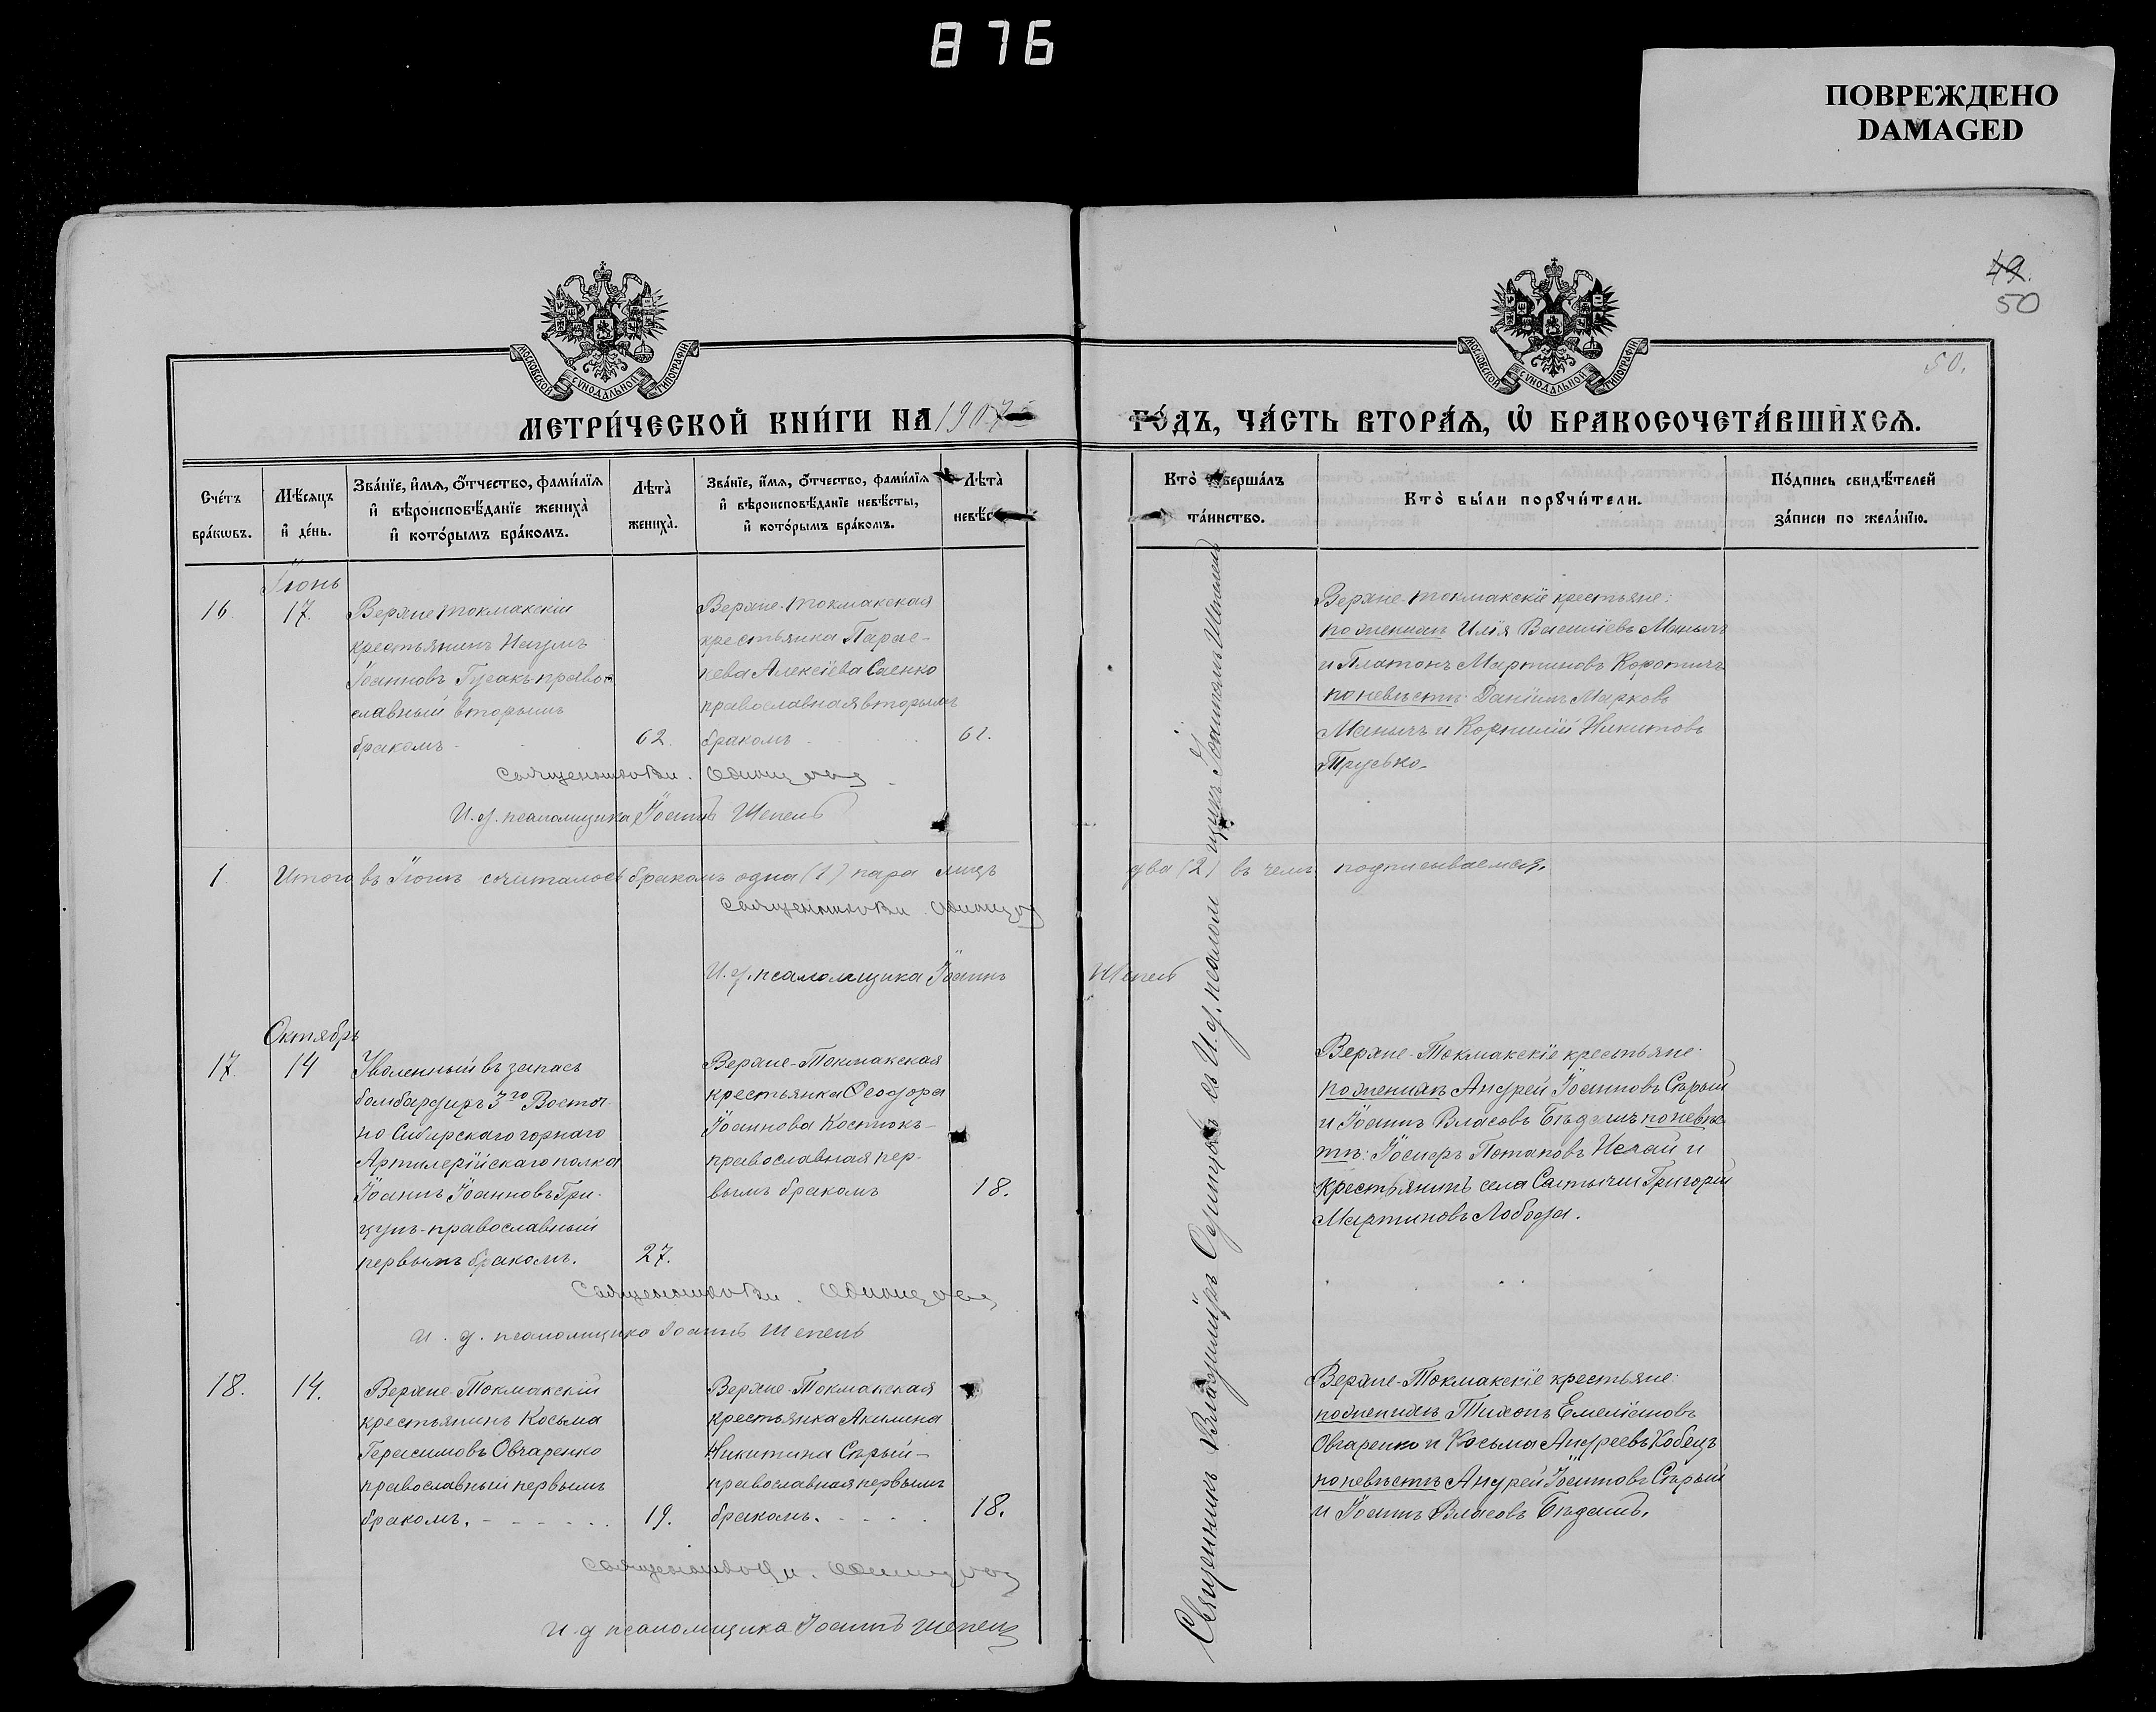 876
ПОВРЕЖДЕНО
DAMAGED
49.
50
50.
МОСКОВСКОЙ СѴНОДАЛЬНОЙ ТИПОГРАФІИ
МОСКОВСКОЙ СѴНОДАЛЬНОЙ ТИПОГРАФІИ
МЕТРИ́ЧЕСКОЙ КНИ́ГИ НА 1907
ГО́ДЪ, ЧА́СТЬ ВТОРА́Ѧ, Ѽ БРАКОСОЧЕТА́ВШИХСѦ.
Сче́тъ
бра́кѡвъ.
Мѣ́сяцъ
и҆ де́нь.
Зва́нїе, и҆́мѧ, ѻ҆́тчество, фами́лїѧ
и҆ вѣроисповѣ́данїе жениха̀
и҆ кото́рымъ бра́комъ.
Лѣта̀
жениха̀.
Зва́нїе, и҆́мѧ, ѻ҆́тчество, фами́лїѧ
и҆ вѣроисповѣ́данїе невѣ́сты,
и҆ кото́рымъ бра́комъ.
Лѣта̀
невѣ́с
Кто̀ вершалъ
та́инство.
Кто̀ бы́ли порꙋчи́тели.
По́дпись свидѣ́телей
за́писи по жела́нїю.
Іюнь
16.
17.
Верхнетокмакскій
крестьянинъ Наумъ
Іоанновъ Гусакъ право-
славный вторымъ
бракомъ
62.
Верхне-токмакская
крестьянка Парас-
кева Алексіева Саенко
православная вторымъ
бракомъ
61.
Верхне-токмакскіе крестьяне:
по женихѣ Илія Василіевъ Манычъ
и Платонъ Мартиновъ Коротичъ
по невѣстѣ: Даніилъ Марковъ
Манычъ и Корнилій Никитовъ
Трусько.
Священникъ Вл. Одинцовъ
И. д. псаломщика Іоаннъ Шепель
1.
Итого въ Іюнѣ считалось бракомъ одна (1) пара лицъ
два (2) въ чемъ подписываемся.
Священникъ Вл. Одинцовъ
И. д. псаломщика Іоаннъ
Шепель
Октябрь
17.
14
Уволенный въ запасъ
бомбардиръ 3го Восточ-
но Сибирскаго горнаго
Артилерійскаго полка
Іоаннъ Іоанновъ Гри-
цунъ-православный
первымъ бракомъ.
27.
Верхне-Токмакская
крестьянка Ѳеодора
Іоаннова Костюкъ-
православная пер-
вымъ бракомъ
18.
Верхне-Токмакскіе крестьяне:
по женихѣ Андрей Іоанновъ Сѣрый
и Іоаннъ Власовъ Бѣдашъ по невѣс
тѣ: Іосифъ Потаповъ Нечай и
крестьянинъ села Салтычіи Григорій
Мартиновъ Лобода.
Священникъ Вл. Одинцовъ
И. д. псаломщика Іоаннъ Шепель
18.
14.
Верхне-Токмакскій
крестьянинъ Косьма
Герасимовъ Овчаренко
православный первымъ
бракомъ.
19.
Верхне-Токмакская
крестьянка Акилина
Никитина Сѣрый-
православная первымъ
бракомъ.
18.
Верхне-Токмакскіе крестьяне:
по женихѣ Тихонъ Емеліановъ
Овчаренко и Косьма Андреевъ Кобецъ
по невѣстѣ Андрей Іоанновъ Сѣрый
и Іоаннъ Власовъ Бѣдашъ.
Священникъ Вл. Одинцовъ
И. д. псаломщика Іоаннъ Шепель
Священникъ Владиміръ Одинцовъ съ И. д. псаломщика Іоанномъ Шепелемъ